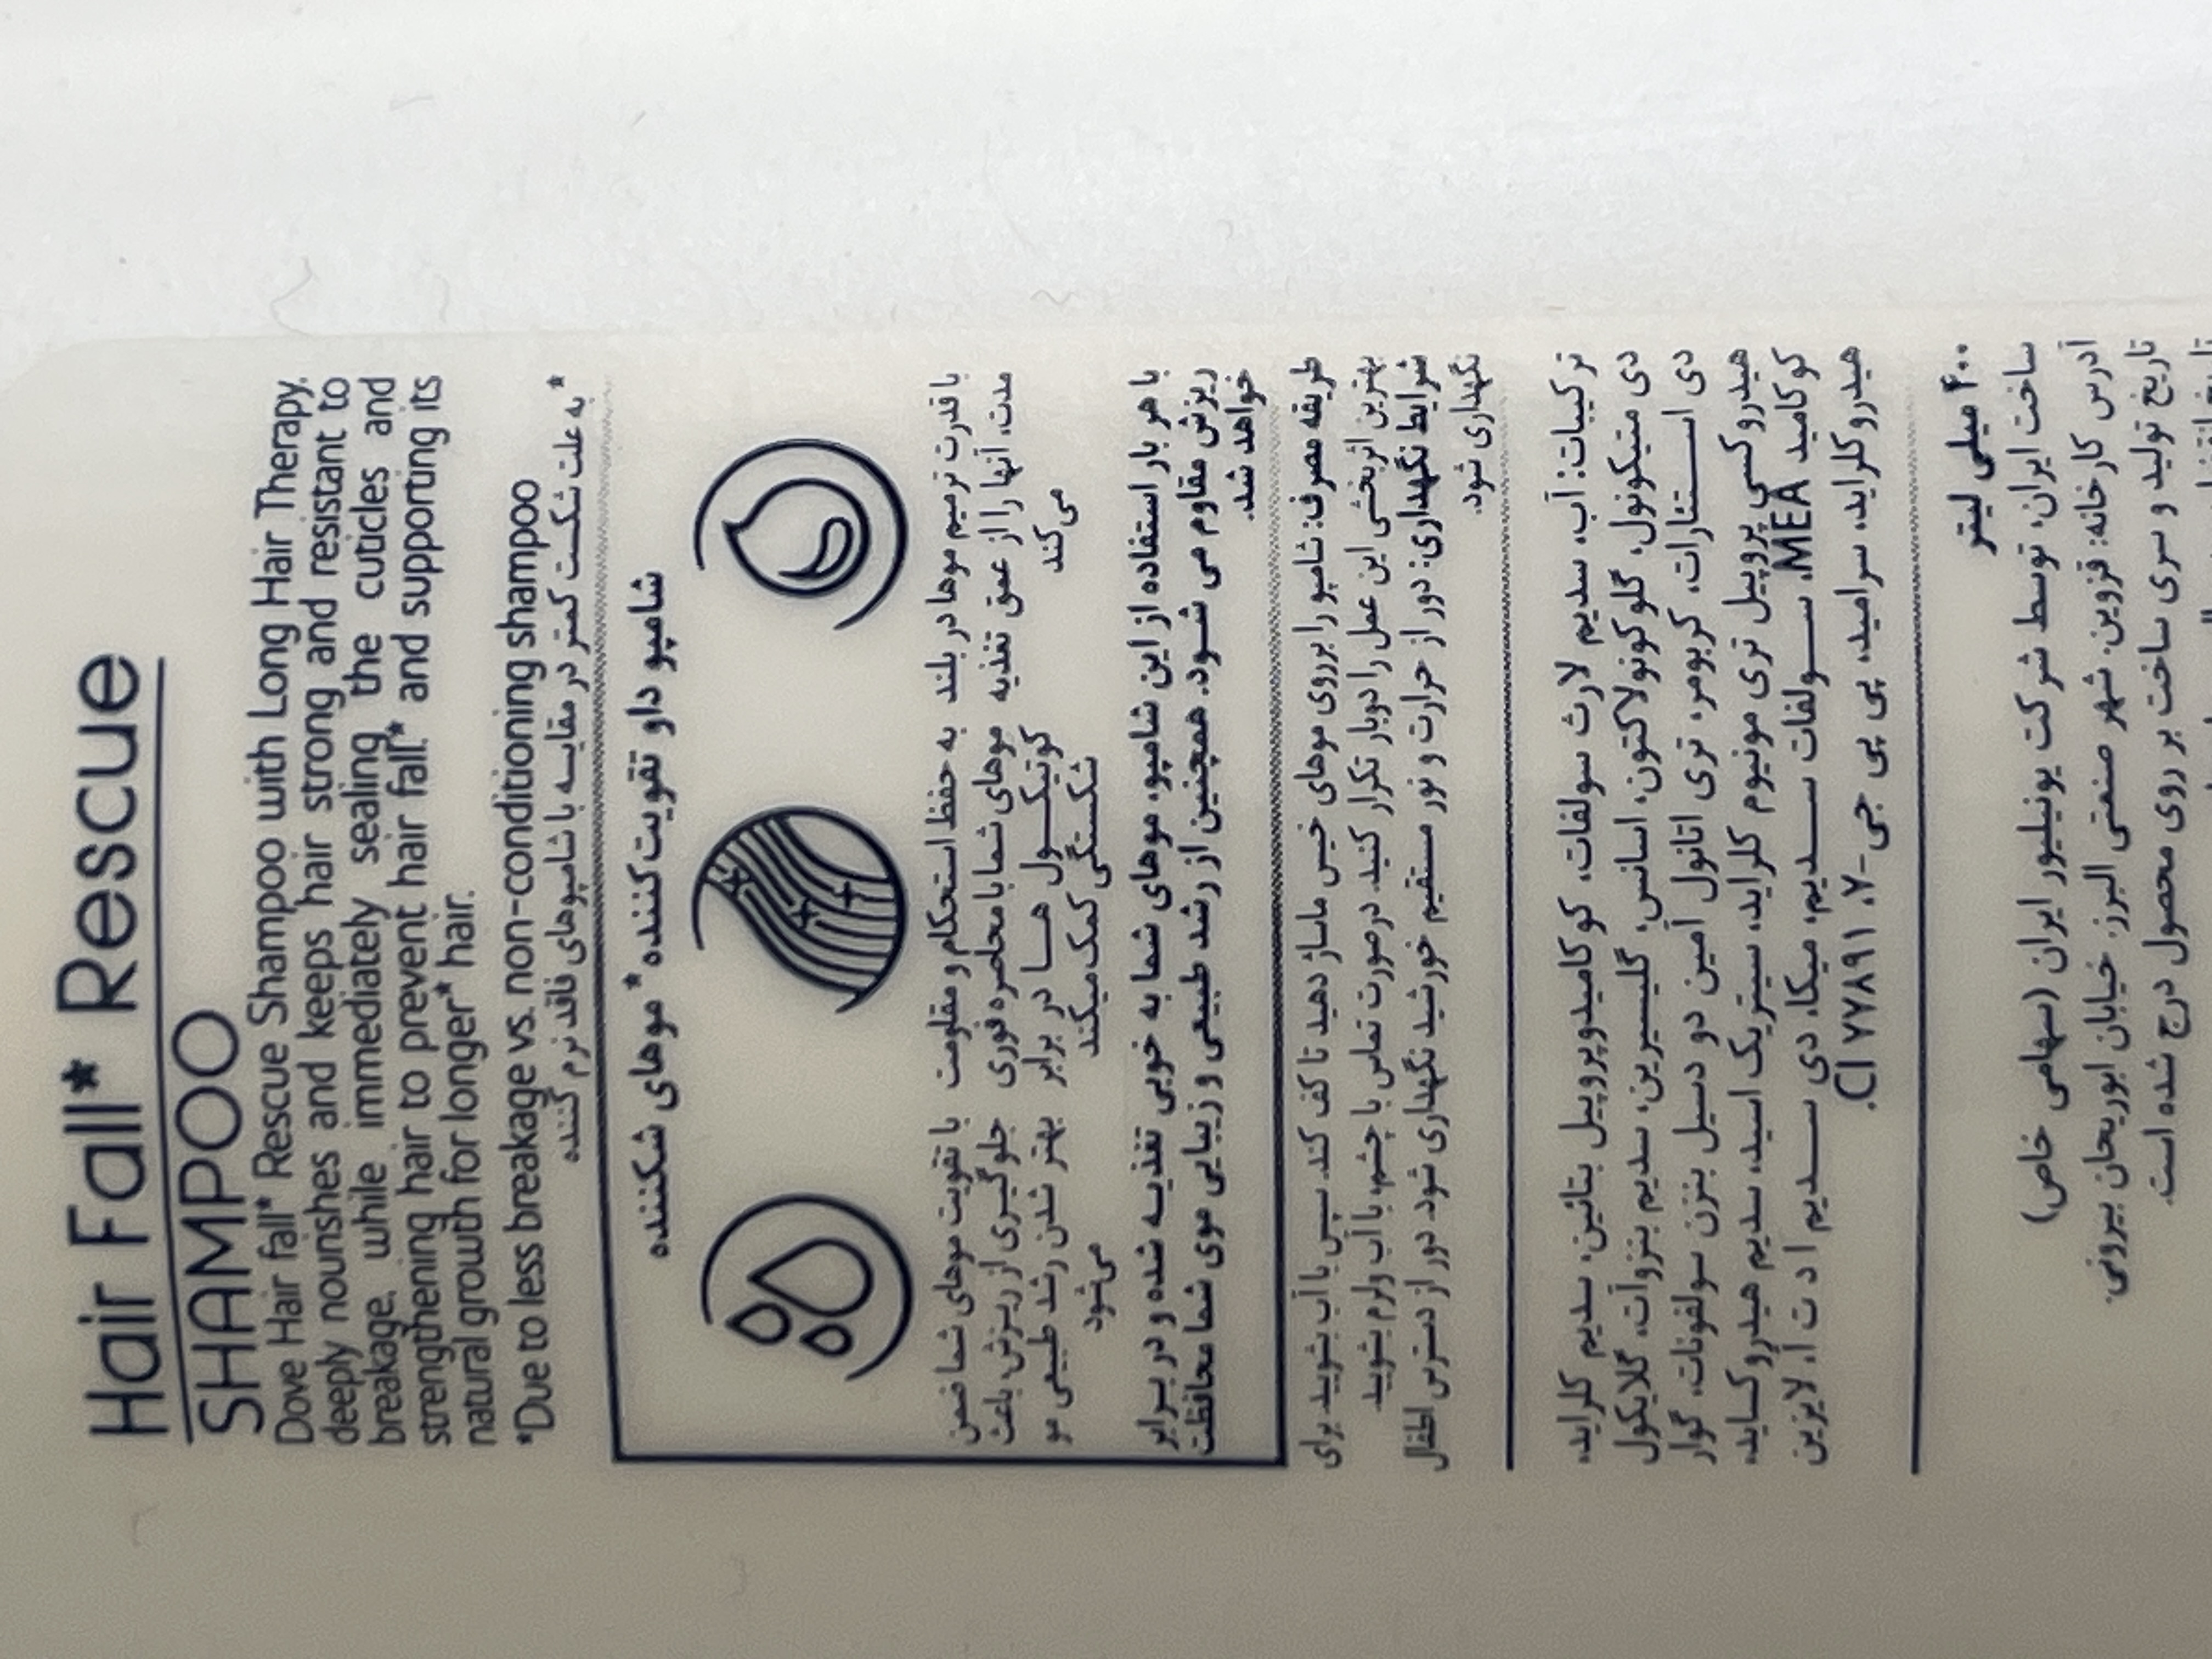 Hair Fall* Rescue
SHAMPOO
Dove Hair fall* Rescue Shampoo with Long Hair Therapy.
deeply nourishes and keeps hair strong and resistant to
breakage, while immediately sealing the cuticles and
strengthening hair to prevent hair fall.* and supporting its
natural growth for longer* hair.
*Due to less breakage vs. non-conditioning shampoo
*به علت شکست کمتر در مقایسه با شامپوهای فاقد نرم کننده
شامپو داو تقویت کننده* موهای شکننده
با قدرت ترمیم موها در بلند
مدت، آنها را از عمق تغذیه
می کند
به حفظ استحکام و مقاومت
موهای شما با محاصره فوری
کوتیکـــول هـــا در برابر
شکستگی کمک میکند
با تقویت موهای شما ضمن
جلوگیری از ریزش، باعث
بهتر شدن رشد طبیعی مو
می شود
با هر بار استفاده از این شامپو، موهای شما به خوبی تغذیـه شده و در برابر
ریزش مقاوم می شـود. همچنین از رشد طبیعی و زیبایی موی شما محافظت
خواهد شد.
طریقه مصرف: شامپو را برروی موهای خیس ماساژ دهید تا کف کند. سپس با آب بشویید. برای
بهترین اثربخشی این عمل را دوبار تکرار کنید. درصورت تماس با چشم، با آب ولرم بشویید.
شرایط نگهداری: دور از حرارت و نور مستقیم خورشید نگهداری شود. دور از دسترس اطفال
نگهداری شود.
ترکیبات: آب، سدیم لارث سولفات، کوکامیدوپروپیل بتائین، سدیم کلراید،
دی متیکونول، گلوکونولاکتون، اسانس، گلیسیرین، سدیم بنزوآت، گلایکول
دی اســـتئارات، کربومر، تری اتانول آمین دو دسیل بنزن سولفونات، گوار
هیدروکسی پروپیل تری مونیوم کلراید، سیتریک اسید، سدیم هیدروکساید،
کوکامید MEA، ســـولفات ســـدیم، میکا، دی ســـدیم ا د ت آ، لایزین
هیدروکلراید، سرامید، پی پی جی-۷، CI ۷۷۸۹۱.
۴۰۰ میلی لیتر
ساخت ایران، توسط شرکت یونیلیور ایران (سهامی خاص)
آدرس کارخانه: قزوین، شهر صنعتی البرز، خیابان ابوریحان بیرونی.
تاریخ تولید و سری ساخت بر روی محصول درج شده است.